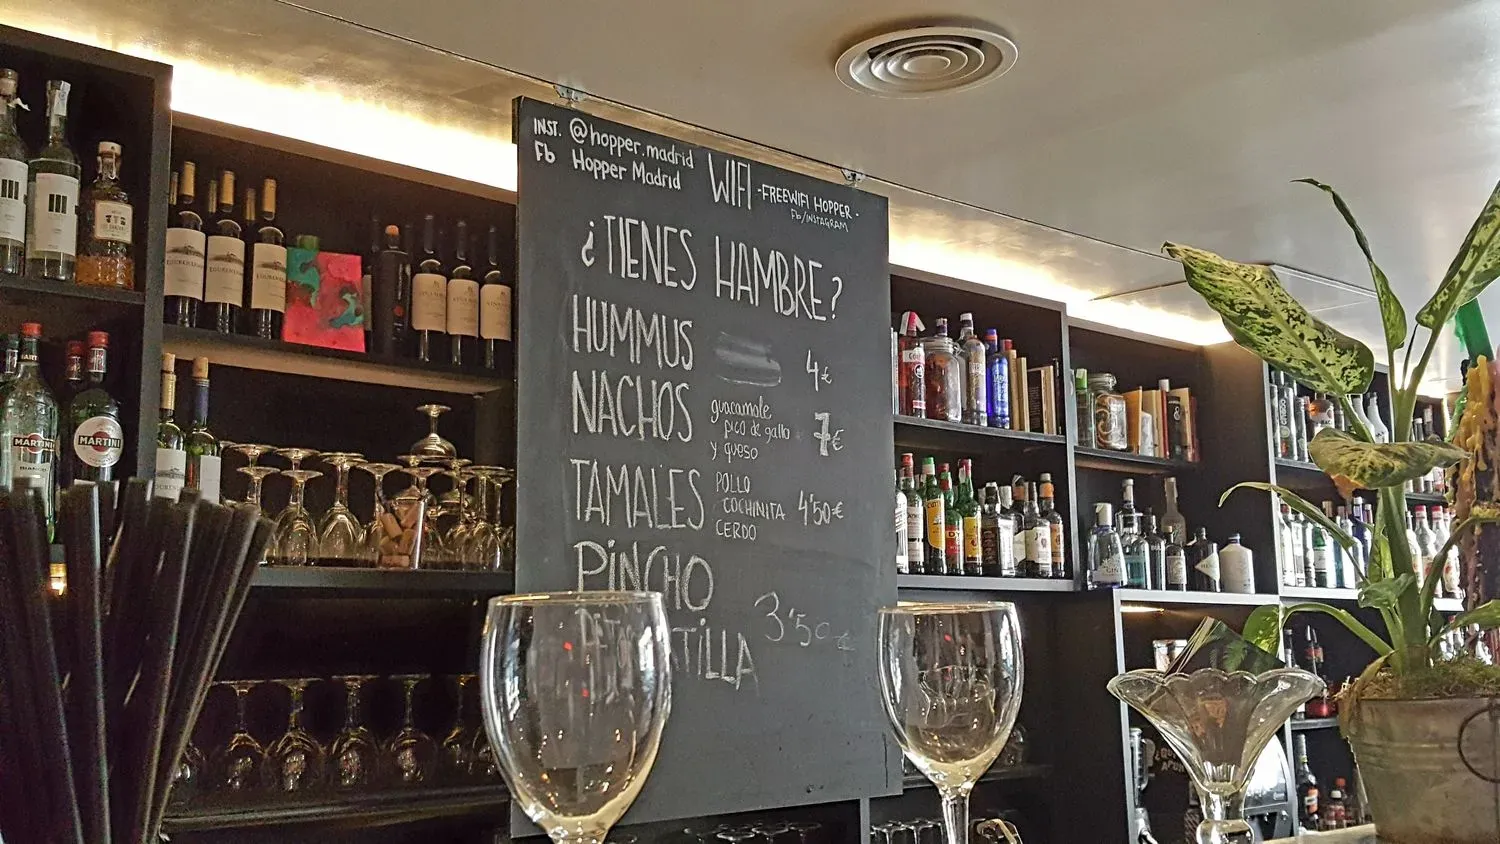 INST. @hopper.madrid
Fb Hopper Madrid
WIFI -FREEWIFI HOPPER-
Fb/INSTAGRAM
¿TIENES HAMBRE?
HUMMUS 4€
NACHOS guacamole
pico de gallo
y queso 7€
TAMALES POLLO
COCHINITA
CERDO 4'50€
PINCHO
3'50€
MARTINI
MARTINI
BIANCO